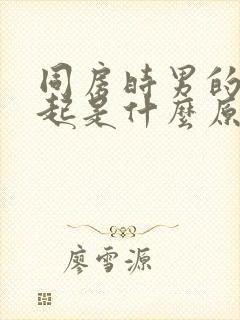 同房時男的
起是什麼原
廖雪源